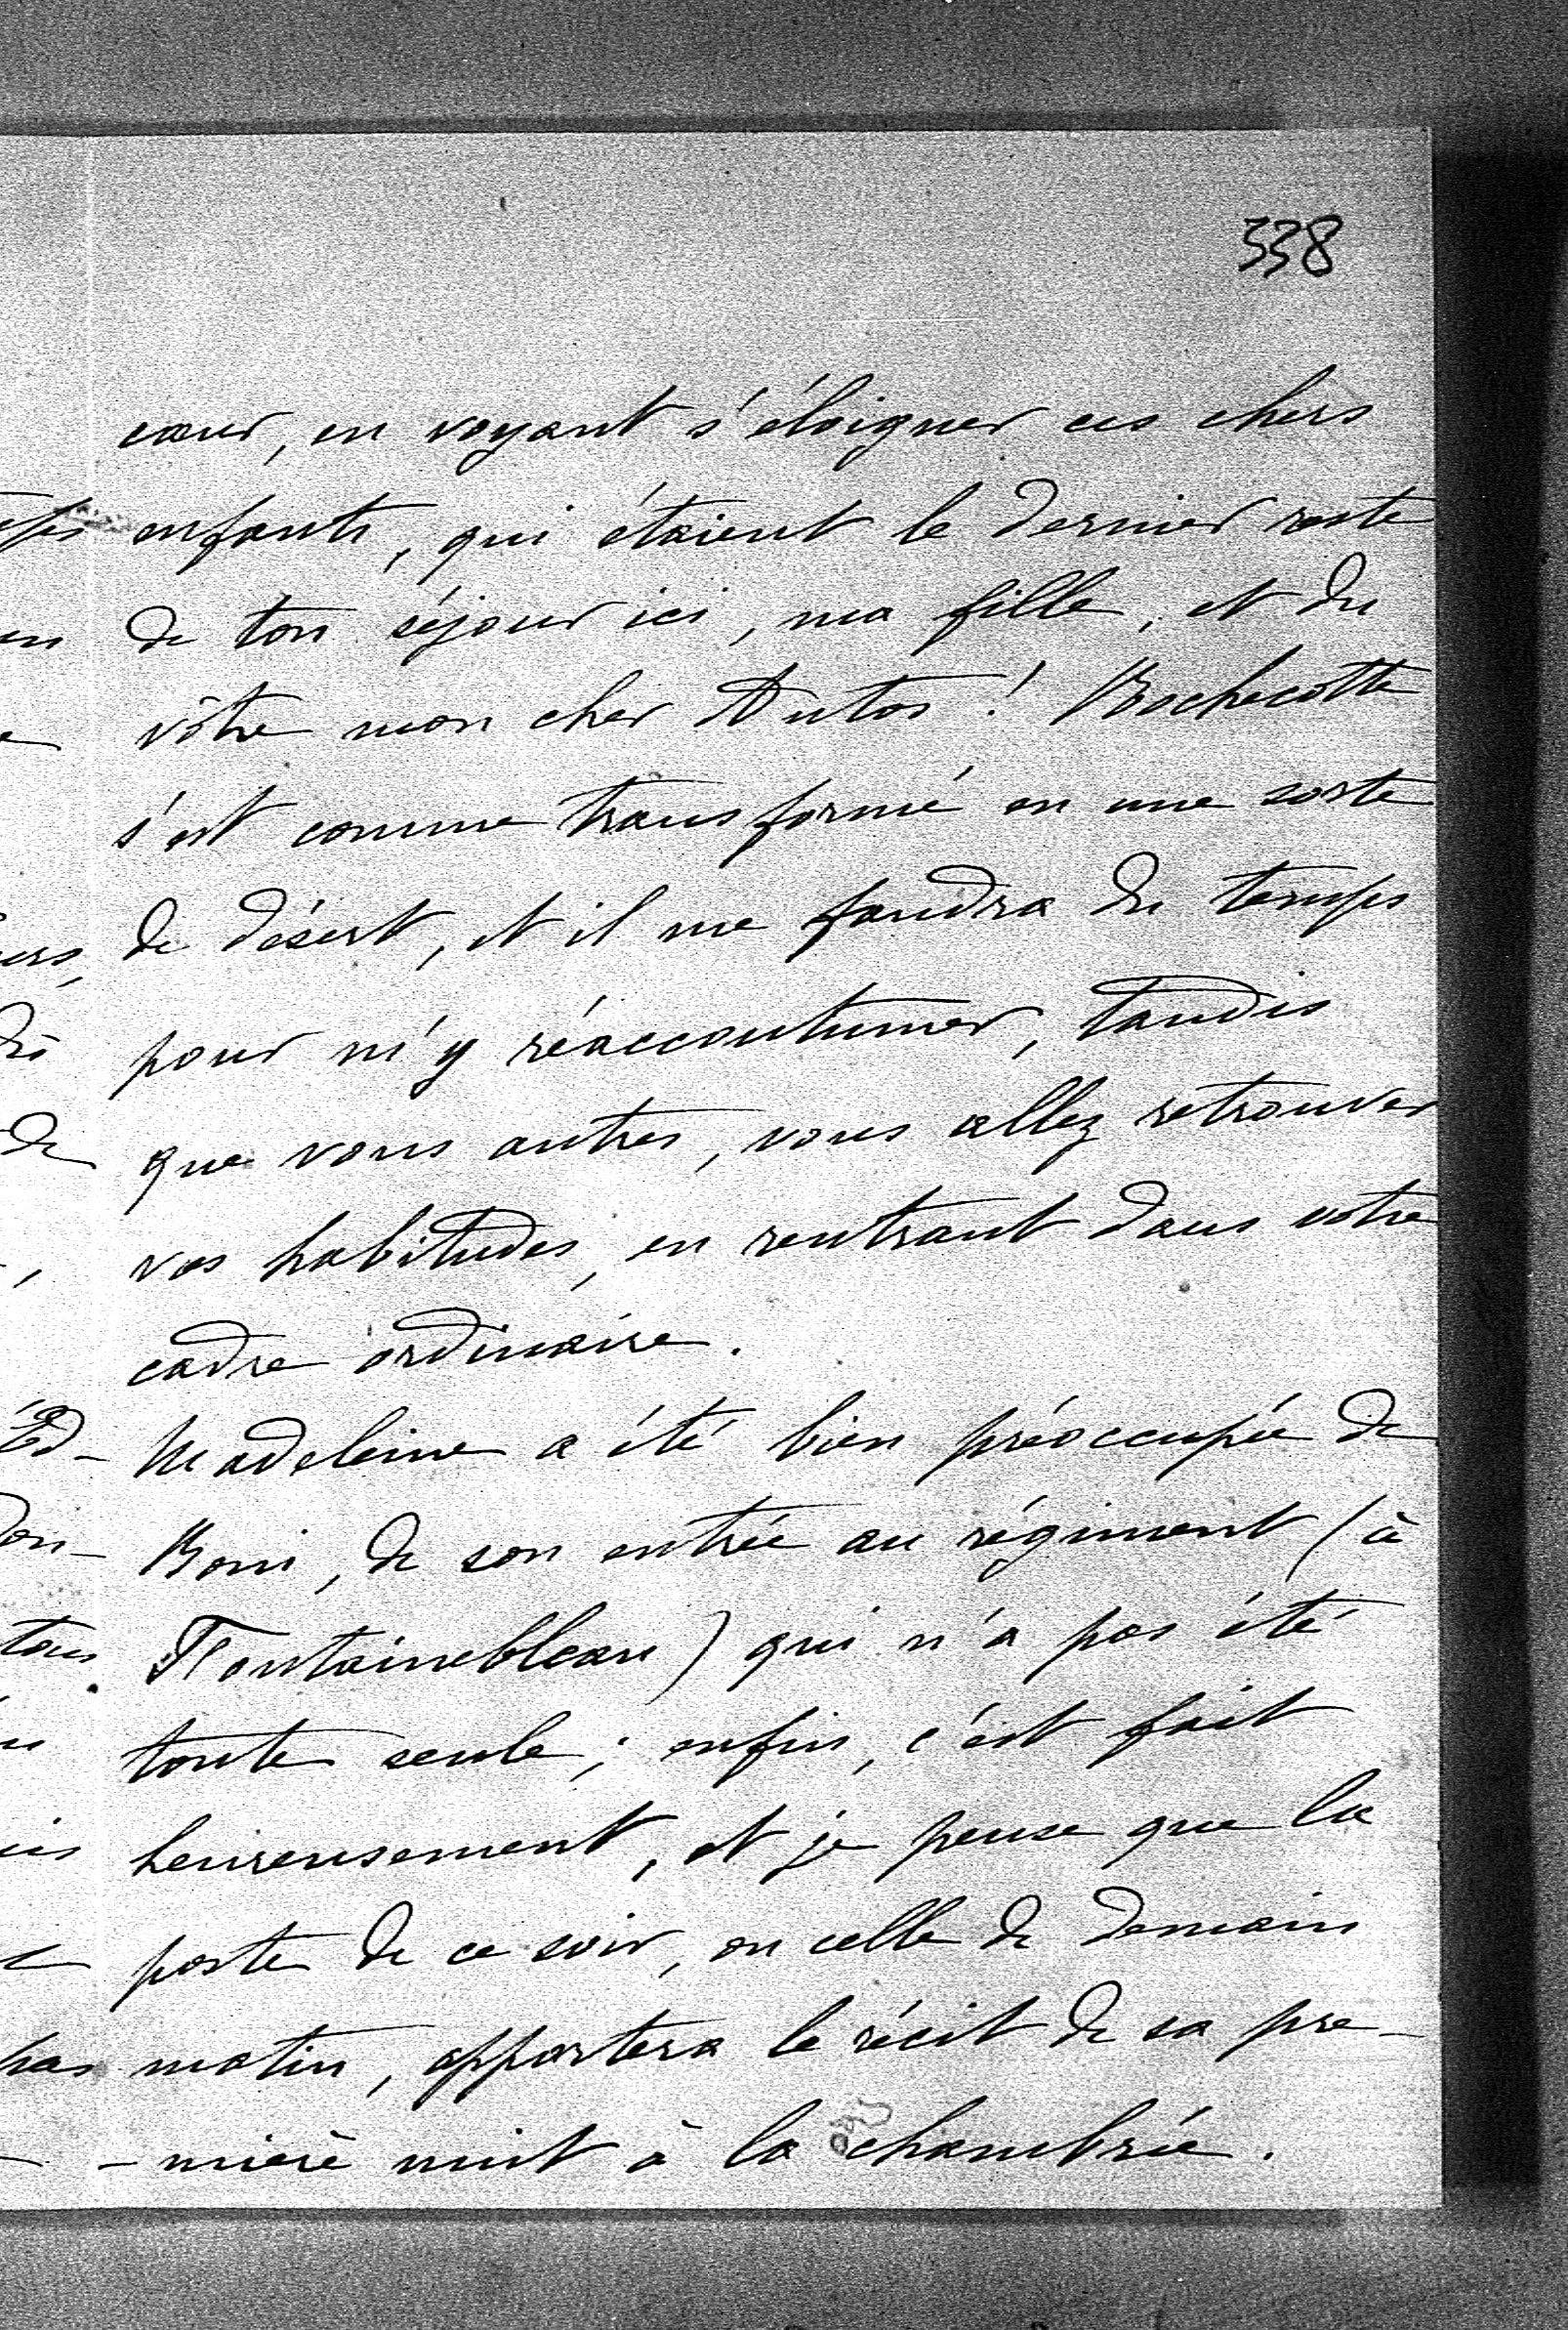 338
cœur, en voyant s'éloigner ces chers
enfants, qui étaient le dernier reste
de ton séjour ici, ma fille, et du
vôtre mon cher Antos! Rochecotte
s'est comme transformé en une sorte
de désert, et il me faudra du temps
pour m'y réaccoutumer, tandis
que vous autres, vous allez retrouver
vos habitudes, en rentrant dans votre
cadre ordinaire.
Madeleine a été bien préoccupée de
Boni, de son entrée au régiment (à
Fontainebleau) qui n'a pas été
toute seule; enfin, c'est fait
heureusement, et je pense que la
poste de ce soir, ou celle de demain
matin, apportera le récit de sa pre-
-mière nuit à la chambrée.